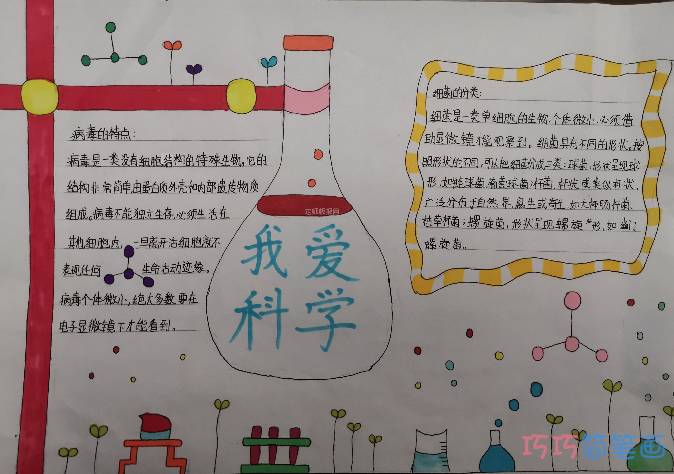 病毒的特点：
病毒是一类没有细胞结构的特殊生物。它的
结构非常简单由蛋白质外壳和内部遗传物质
组成。病毒不能独立生存，必须生活在
其他细胞内，一旦离开活细胞就不
表现任何 生命活动迹象。
病毒个体微小，绝大多数要在
电子显微镜下才能看到。
我爱
科学
细菌的分类：
细菌是一类单细胞的生物，个体微小，必须借
助显微镜才能观察到。细菌具有不同的形状，按
照形状的不同，可以把细菌分成三类：球菌，形状呈现球
形，如
广泛分布于自然界，
螺旋菌，形状呈现螺旋形，如
螺旋菌。
巧巧简笔画